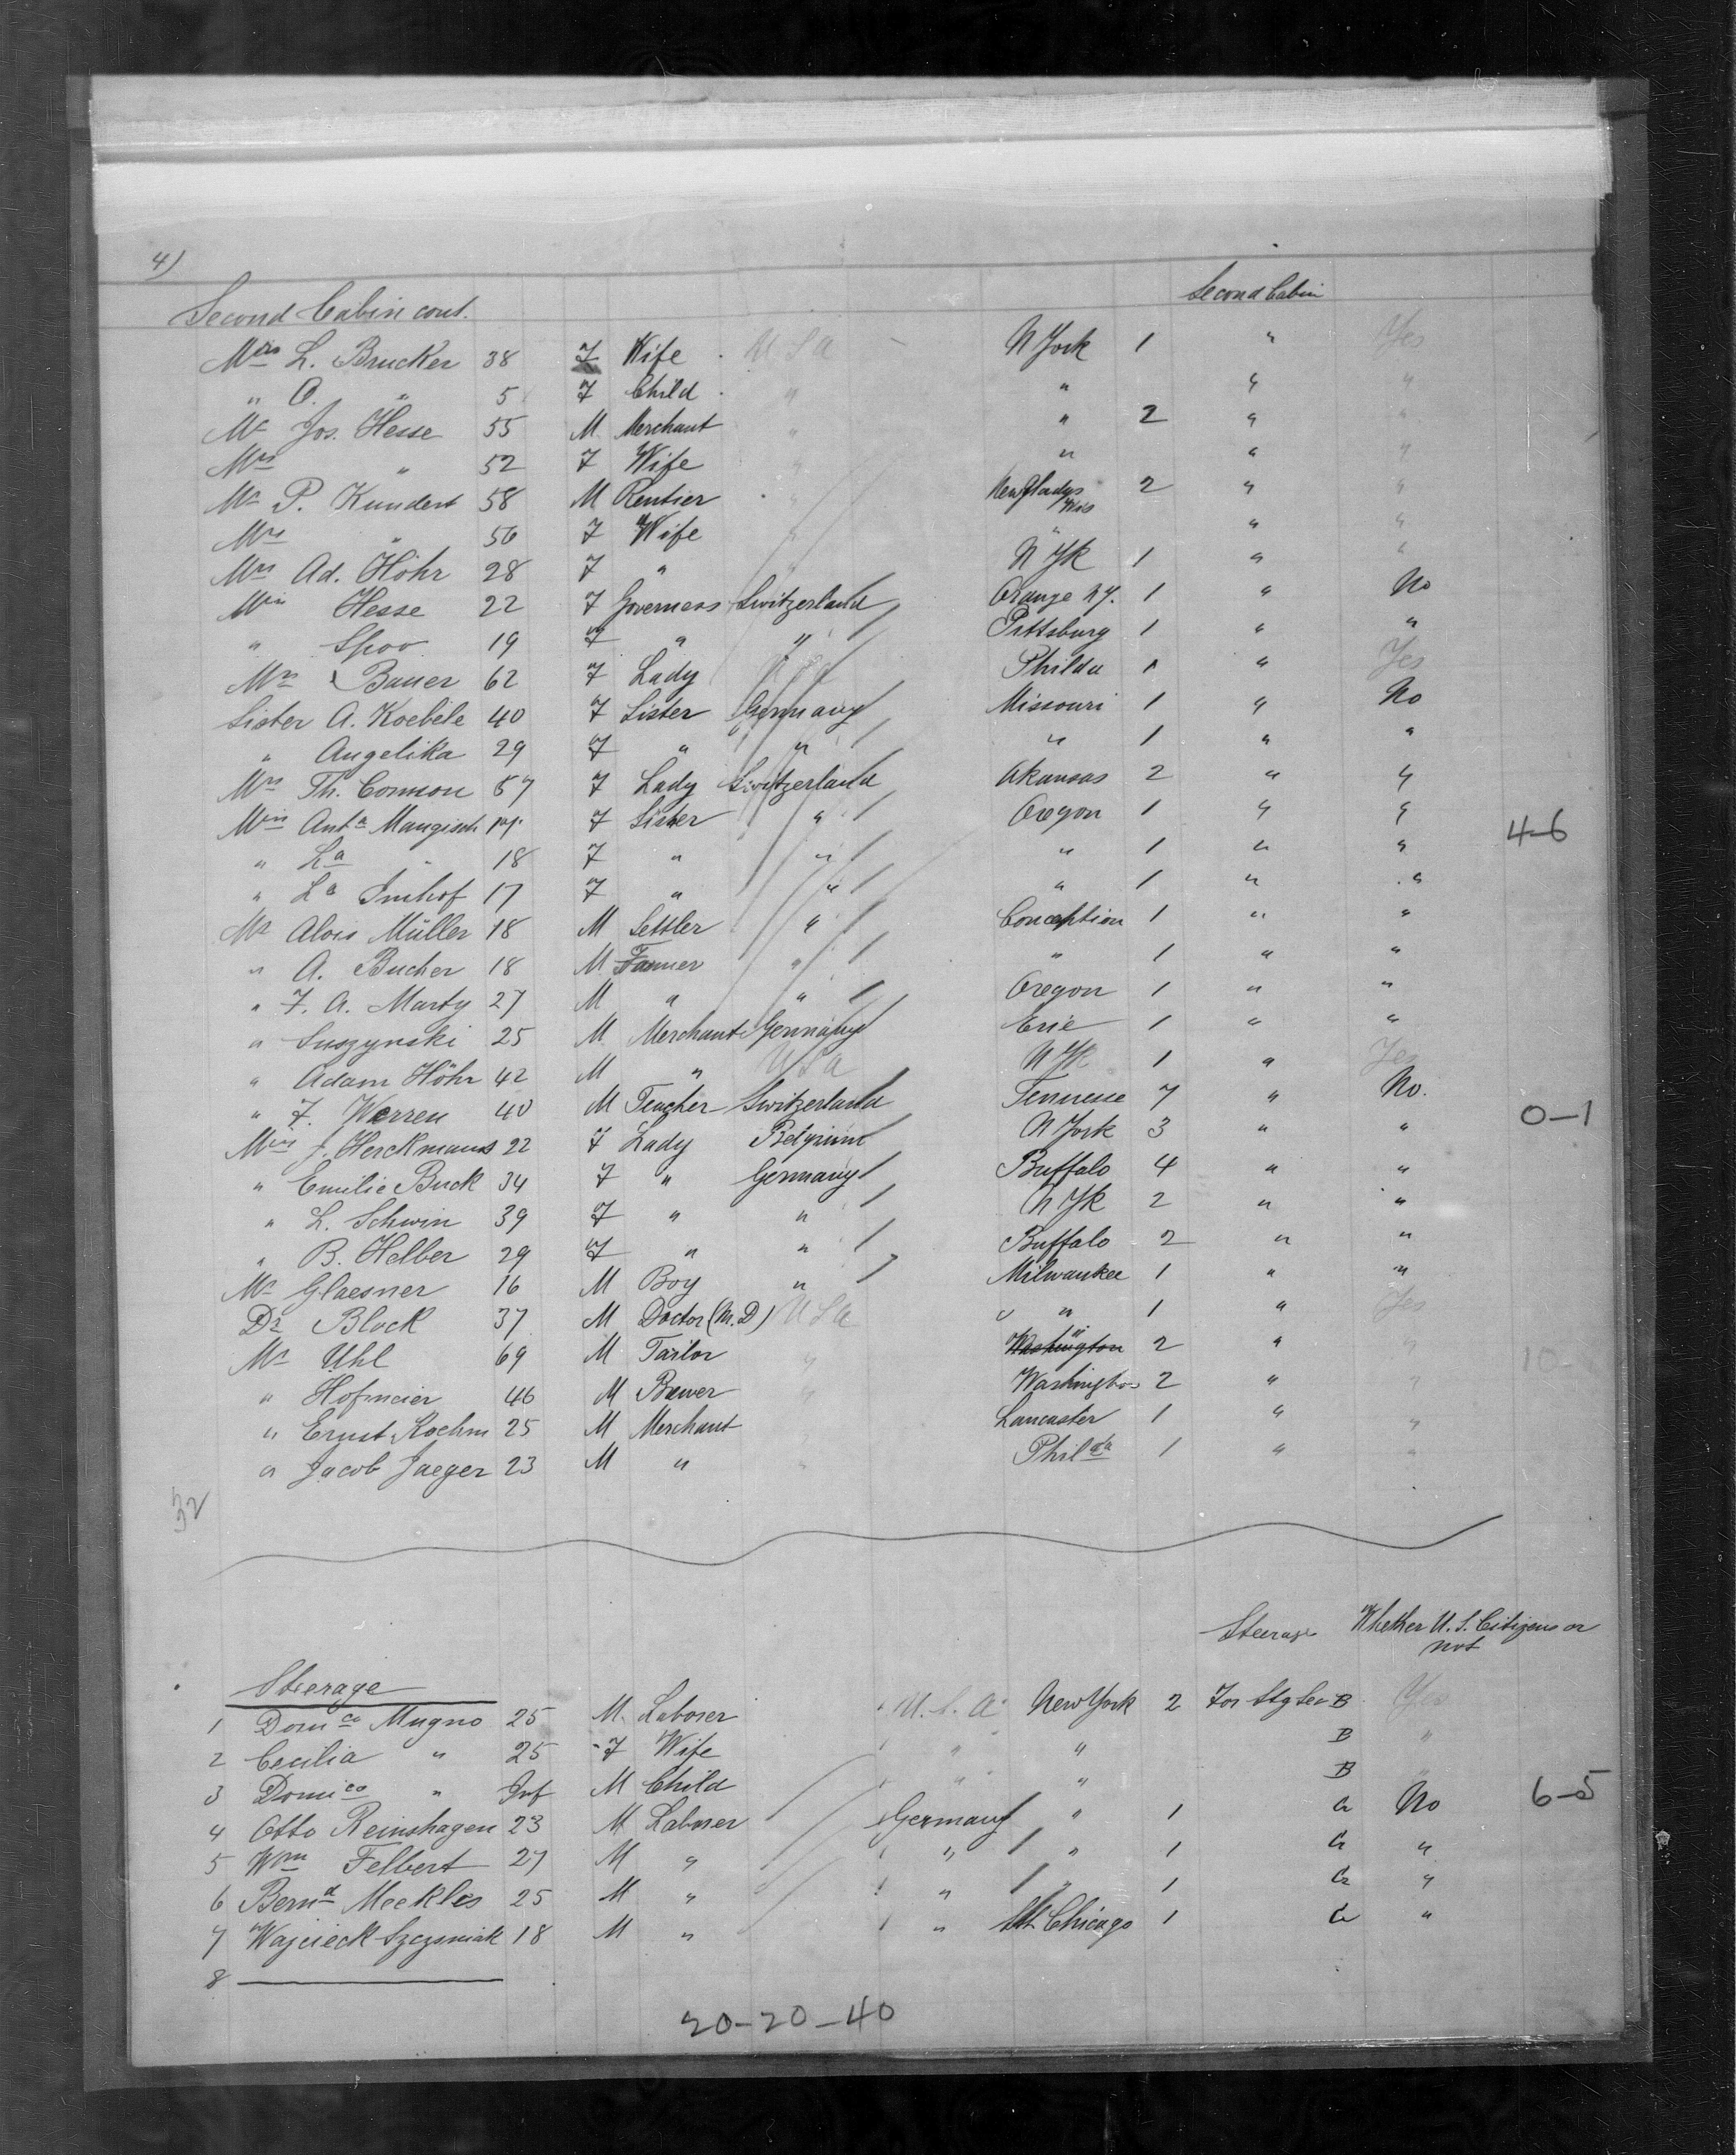 4)
Second Cabin
Second Cabin cont.
Mrs L. Brucker 38 F Wife USA N York 1 " Yes
" O. " 5 F Child " " " "
Mr Jos. Hesse 55 M Merchant " " 2 " "
Mrs " 52 F Wife " " " "
Mr P. Kundert 58 M Rentier " New Wis 2 " "
Mrs " 56 F Wife " " " "
Mrs Ad. Höhr 28 F " " N Yk 1 " "
Miss Hesse 22 F Governess Switzerland Orange NY. 1 " No
" Spoo 19 F " " Pittsburg 1 " "
Mrs Bauer 62 F Lady USA Philda 1 " Yes
Sister A. Koebele 40 F Sister Germany Missouri 1 " No
" Angelika 29 F " " " 1 " "
Mrs Th. Conmon 57 F Lady Switzerland Akansas 2 " "
Miss Anta Mangisch F Sister " Oregon 1 " "
4-6
" La " 18 F " " " 1 " "
" La Imhof 17 F " " " 1 " "
Mr Alois Müller 18 M Settler " Conception 1 " "
" A. Bucher 18 M Farmer " " 1 " "
" F. A. Marty 27 M " " Oregon 1 " "
" Suszynski 25 M Merchant Germany Erie 1 " "
" Adam Höhr 42 M " USA N Yk 1 " Yes
" F. Werren 40 M Teacher Switzerland Tennesse 7 " No.
0-1
Miss J. Herckmans 22 F Lady Belgium N York 3 " "
" Emilie Buck 34 F " Germany Buffalo 4 " "
" L. Schwin 39 F " " N Yk 2 " "
" B. Helber 29 F " " Buffalo 2 " "
Mr Glaesner 16 M Boy " Milwaukee 1 " "
Dr Block 37 M Doctor (M.D) USA " " 1 " Yes
Mr Uhl 69 M Tailor " Washington " 2 " "
10-
" Hofmeier 46 M Brewer " Washington 2 " "
" Ernst Koehm 25 M Merchant Lancaster 1 " "
" Jacob Jaeger 23 M " " Philda 1 " "
32
Steerage Whether U.S. Citizens or
not
Steerage
1 Domco Mugno 25 M. Laborer U.S.A. New York 2 B Yes
2 Cecilia " 25 F Wife " " B "
3 Domico " Inf M Child " " B "
4 Otto Reinshagen 23 M Laborer Germany " 1 No
6-5
5 Wm Felbert 27 M " " " 1 "
6 Bernd Meckles 25 M " " " 1 "
7 Wajcieck Szczsniak 18 M " " Chicago 1 "
8
20-20-40